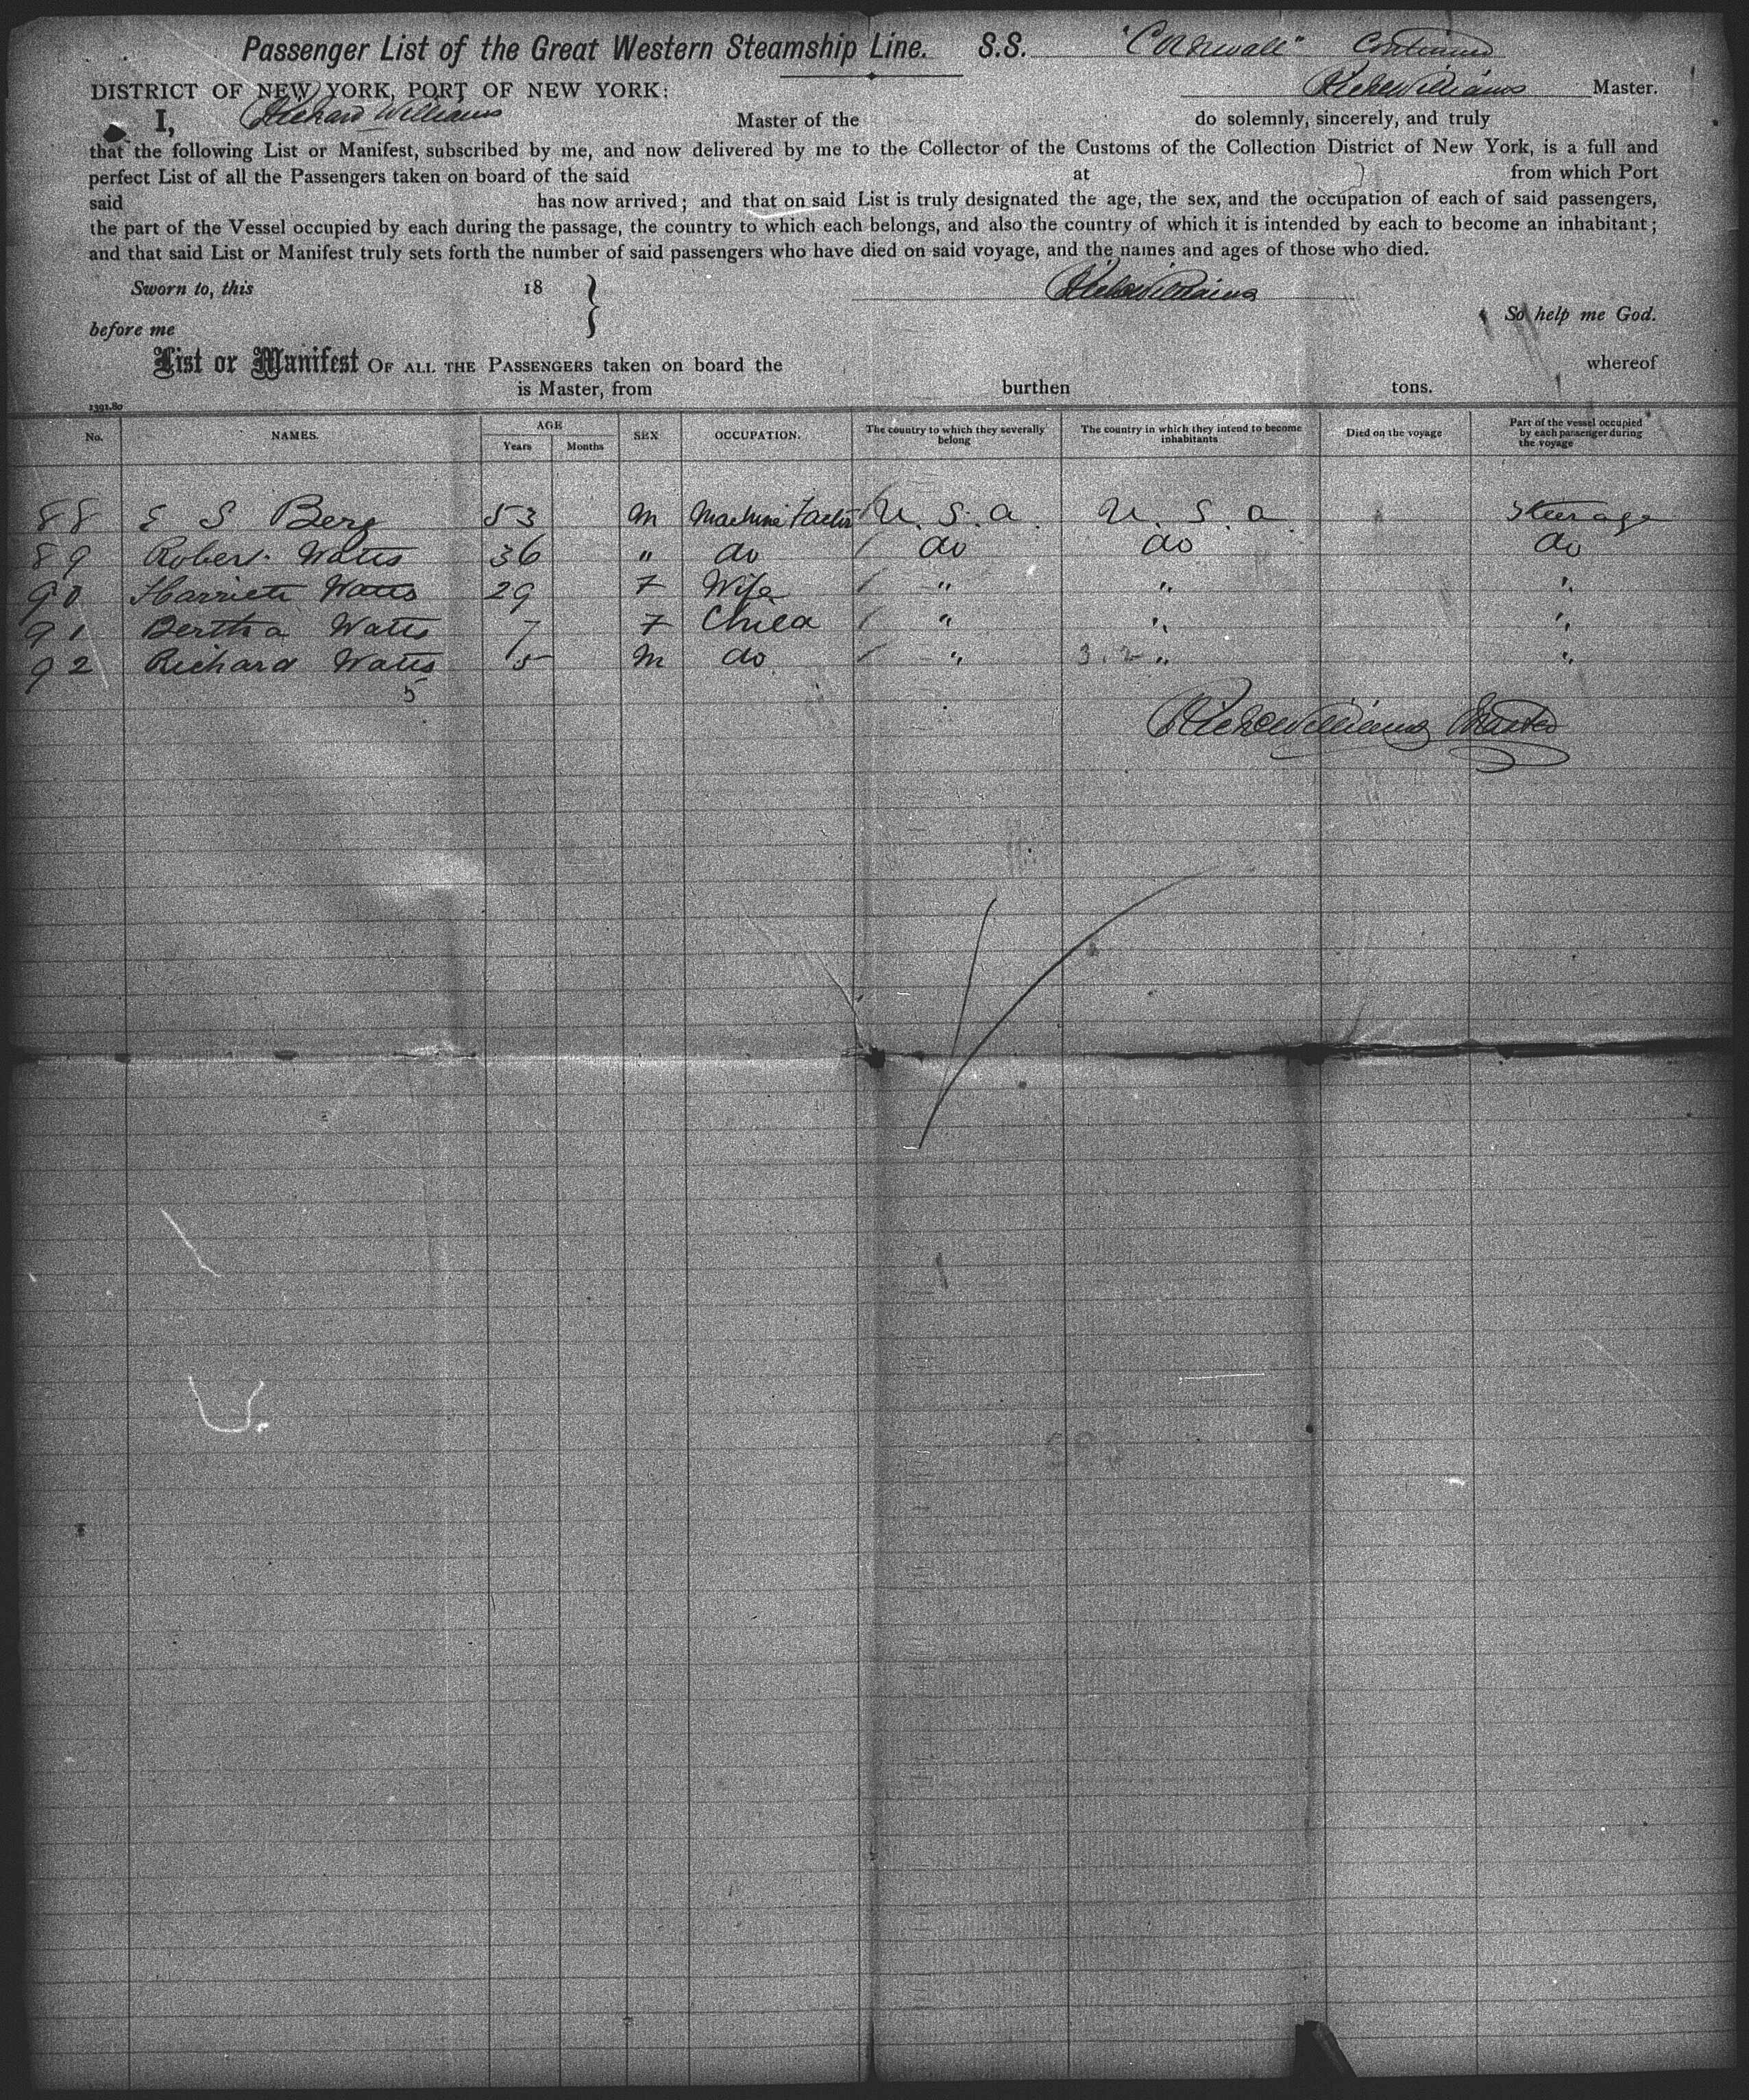 Passenger List of the Great Western Steamship Line. S.S. "Cornwall" Continued
DISTRICT OF NEW YORK, PORT OF NEW YORK: Richd Williams Master.
I, Richard Williams Master of the do solemnly, sincerely, and truly
that the following List or Manifest, subscribed by me, and now delivered by me to the Collector of the Customs of the Collection District of New York, is a full and
perfect List of all the Passengers taken on board of the said at from which Port
said has now arrived; and that on said List is truly designated the age, the sex, and the occupation of each of said passengers,
the part of the Vessel occupied by each during the passage, the country to which each belongs, and also the country of which it is intended by each to become an inhabitant;
and that said List or Manifest truly sets forth the number of said passengers who have died on said voyage, and the names and ages of those who died.
Sworn to, this 18 } Richd Williams
before me So help me God.
List or Manifest OF ALL THE PASSENGERS taken on board the whereof
is Master, from burthen tons.
2391.80
No. NAMES. AGE Years Months SEX OCCUPATION. The country to which they severally belong The country in which they intend to become inhabitants Died on the voyage Part of the vessel occupied by each passenger during the voyage
88 E S Berg 53 M Machine Factor U. S. a. U. S. a. Steerage
89 Robert Watts 36 " do do do do
90 Harriett Watts 29 F Wife " " "
91 Bertha Watts 7 F Child " " "
92 Richard Watts 5 M do " 3.2 " "
5
Richd Williams Master